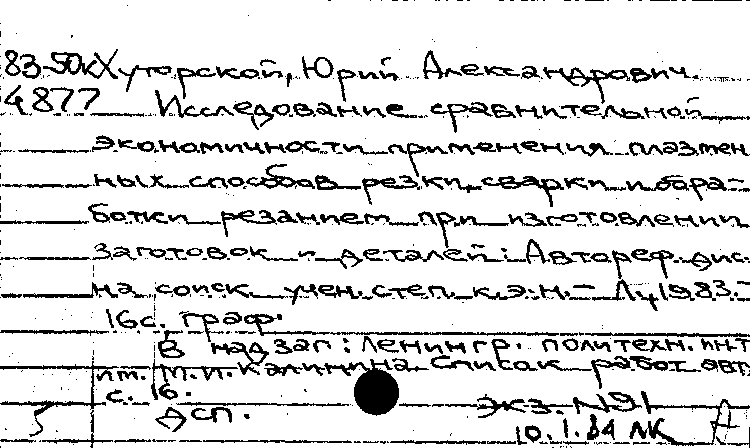 83-50к Хуторской, Юрий Александрович.
4877 Исследование сравнительной
экономичности применения плазмен
ных способов резки, сварки и обра-
ботки резанием при изготовлении
заготовок и деталей: Автореф. дис.
на соиск. учен. степ. к.э.н. - Л., 1983. -
16 с. граф.
В надзаг: Ленингр. политехн. ин-т
им. М.И. Калинина. Список работ авт.
с. 16.
Асп.
экз. №91
10.1.84